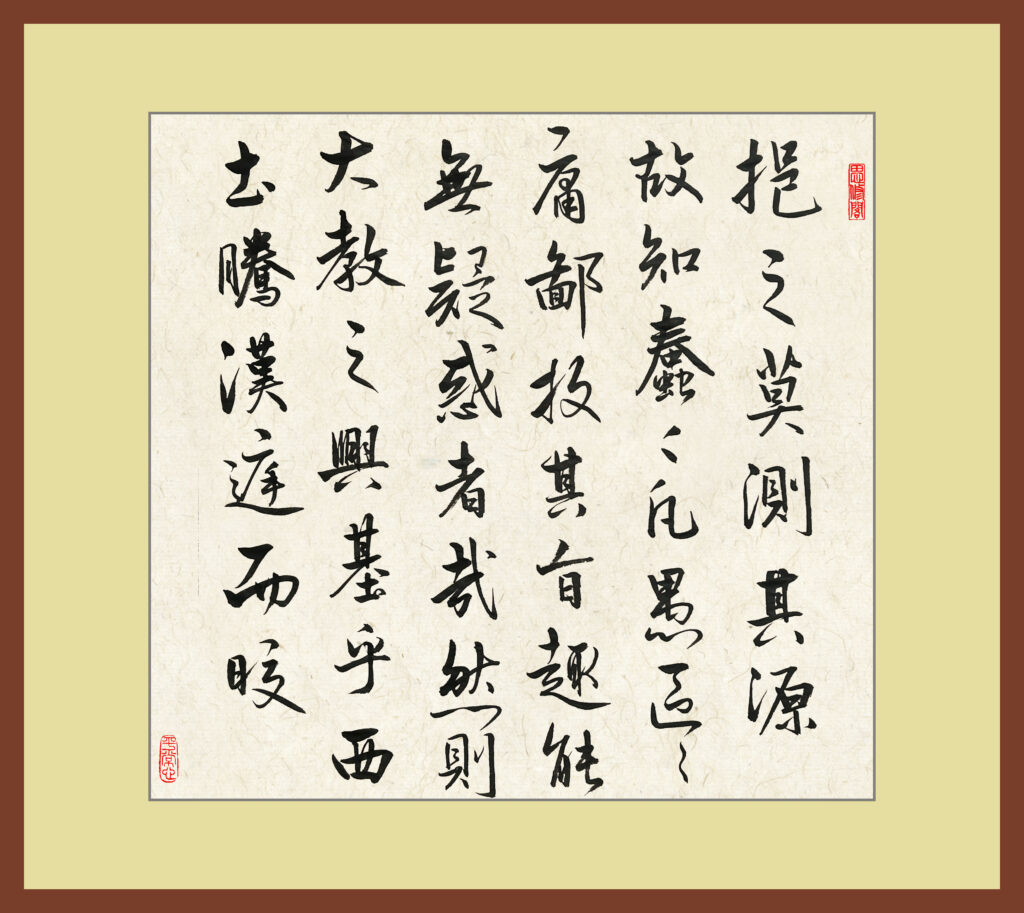 思修閣
挹之莫測其源
故知蠢々凡愚區々
庸鄙投其旨趣能
無疑惑者哉然則
大教之興基乎西
土騰漢庭而晈
平常心